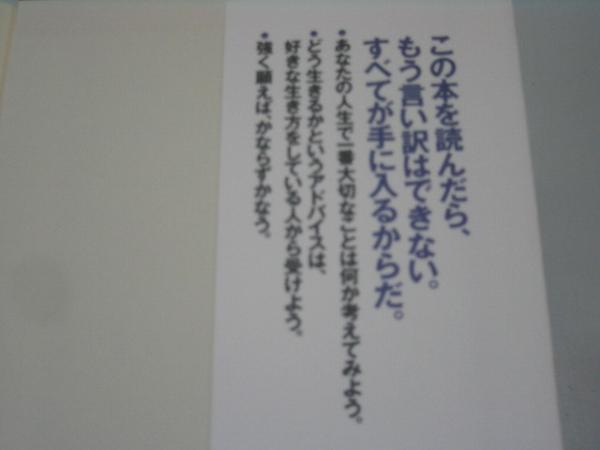 この本を読んだら、
もう言い訳はできない。
すべてが手に入るからだ。
•あなたの人生で一番大切なことは何か考えてみよう。
•どう生きるかというアドバイスは、
好きな生き方をしている人から受けよう。
•強く願えば、かならずかなう。